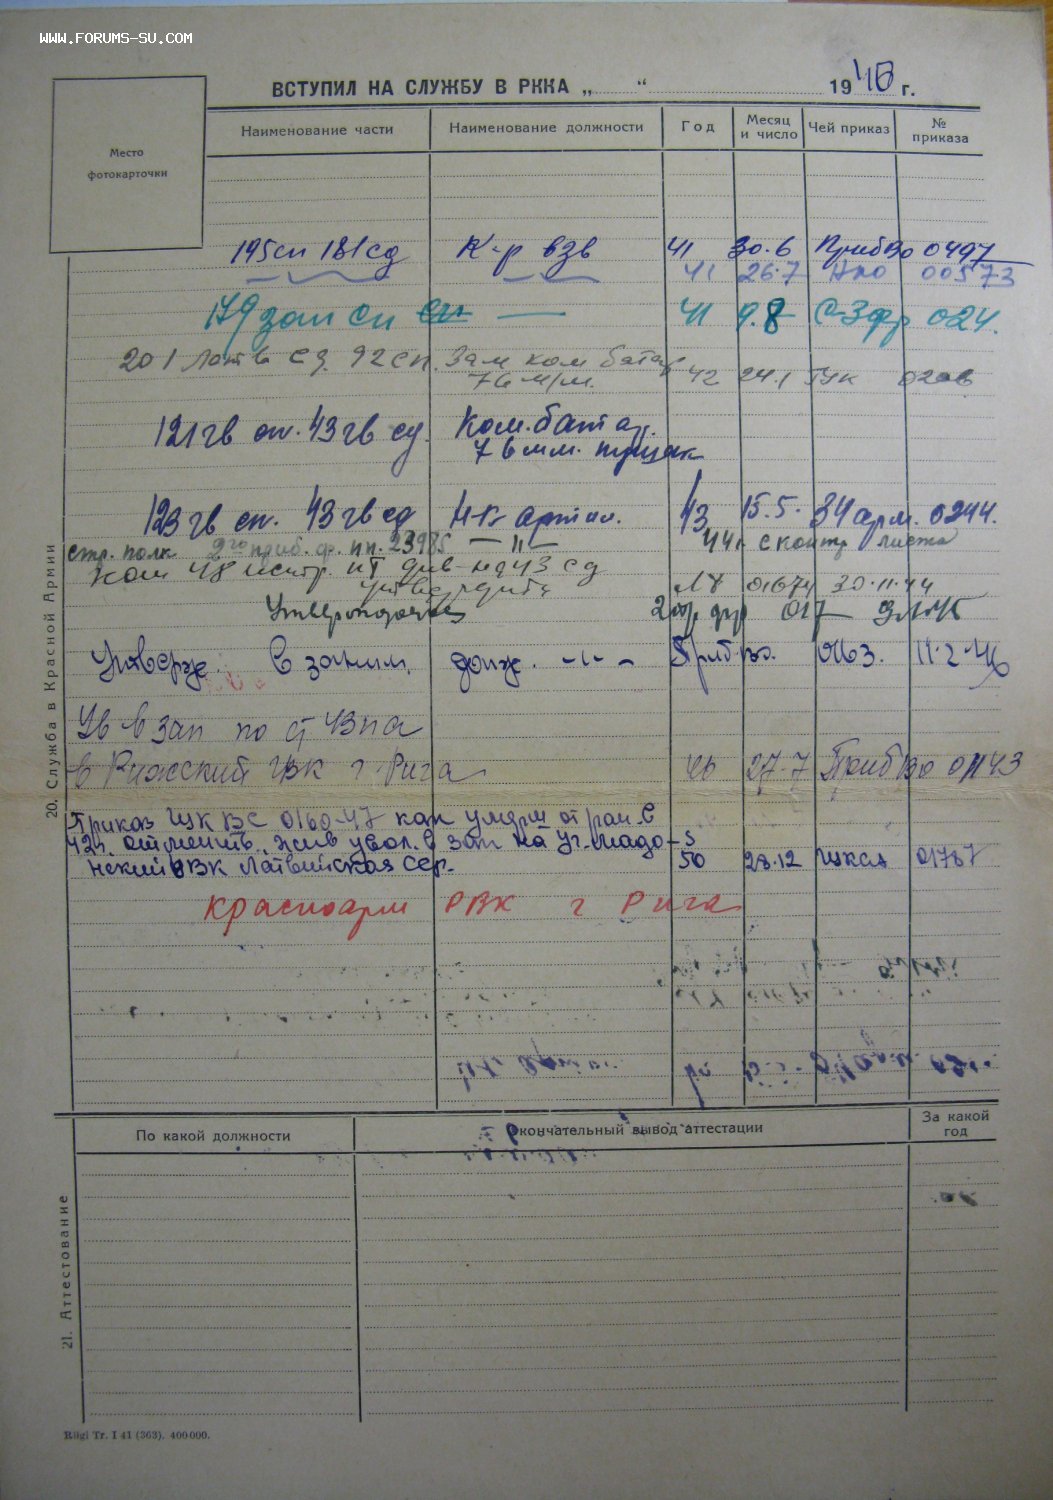 WWW.FORUMS-SU.COM
ВСТУПИЛ НА СЛУЖБУ В РККА „ “ 1940 г.
Место фотокарточки
Наименование части Наименование должности Год Месяц и число Чей приказ № приказа
195 сп 181 сд К-р взв 41 30.6 ПрибВо 0497
41 26.7 НКО 00573
179 зап сп 41 9.8 С-З фр 024.
201 Латв сд. 92 сп. Зам ком батар 76 м/м. 42 24.1 ГУК
121 гв сп. 43 гв сд. Ком. батар. 76 мм. пушек
123 гв сп. 43 гв сд Н-к артил. 43 15.5. 34 арм. 0244.
стр. полк 2го приб. ф. пп. 23985 — " — 44г с контр листа
Ком 48 истр. пт див-на 43 сд
01674 30.11.44
017
Утвержд. в заним. долж. -"- ПрибВо. 0163. 11.2.46
Ув в зап по ст 43 п а
в Рижский ГВК г. Рига 46 27.7 ПрибВо 01143
Приказ ГУК ВС 0160-47 как умерш от ран. в
42г. отменить, жив увол. в зап на уч. Мадо-
нский РВК Латвийская ССР. 50 28.12 01767
Красноарм РВК г Рига
20. Служба в Красной Армии
По какой должности Окончательный вывод аттестации За какой год
21. Аттестование
Rīgi Tr. I 41 (363). 400000.